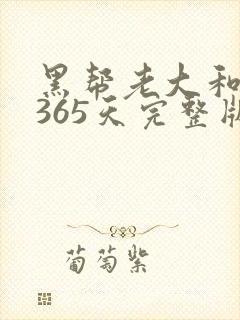 黑帮老大和
365天完整版
葡萄紫